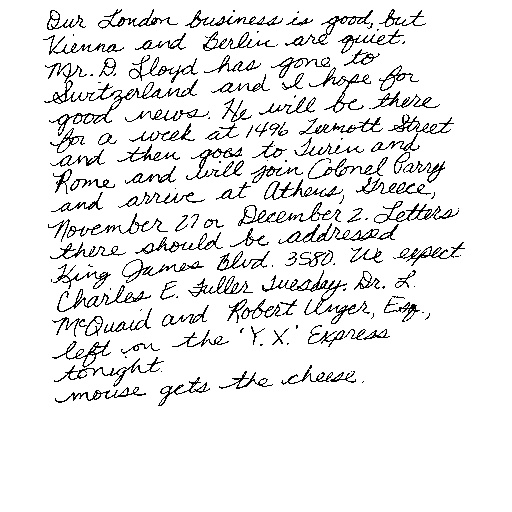 Our London business is good, but
Vienna and Berlin are quiet.
Mr. D. Lloyd has gone to
Switzerland and I hope for
good news. He will be there
for a week at 1496 Zermott Street
and then goes to Turin and
Rome and will join Colonel Parry
and arrive at Athens, Greece,
November 27 or December 2. Letters
there should be addressed
King James Blvd. 3580. We expect
Charles E. Fuller Tuesday. Dr. L.
McQuaid and Robert Unger, Esq.,
left on the 'Y. X.' Express
tonight.
mouse gets the cheese.